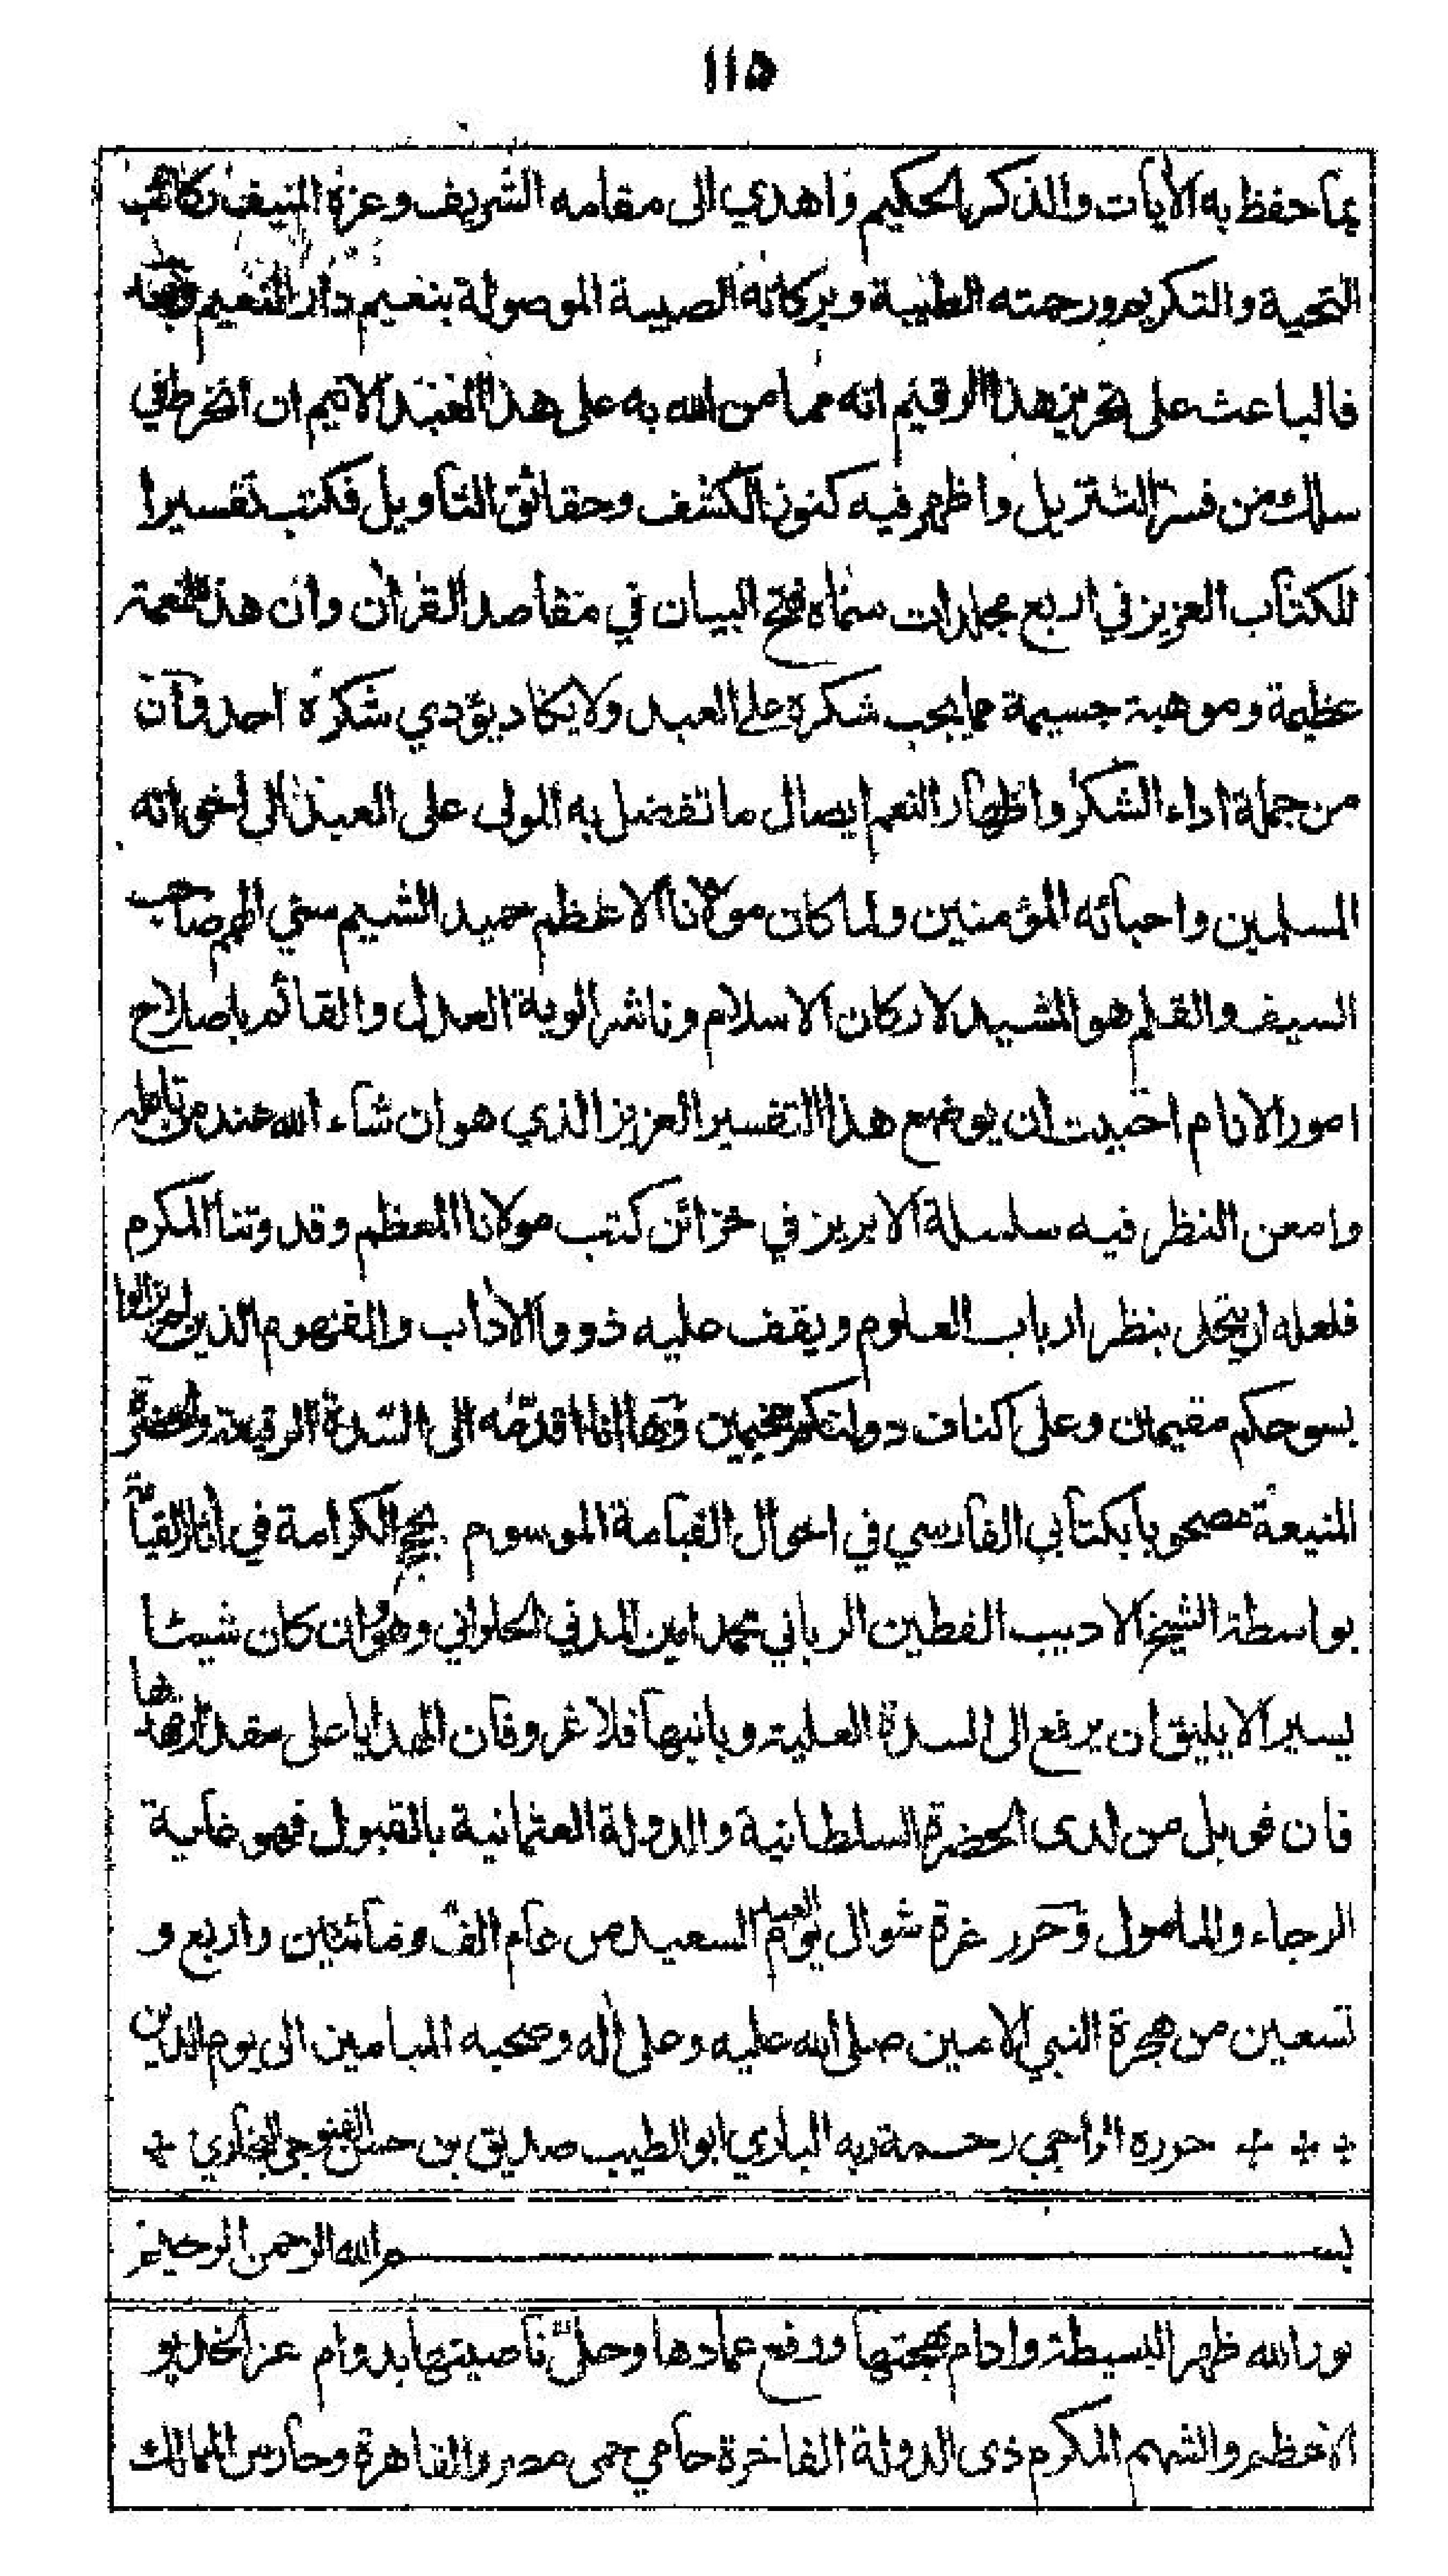 ١١٥
بما حفظ به الآيات والذكر الحكيم واهدي الى مقامه الشريف وعزه المنيف
التحية والتكريم ورحمته الطيبة وبركاته الصيبة الموصولة بنعيم دار النعيم وبعد
فالباعث على تحرير هذا الرقيم انه مما من الله به على هذا العبد الاثيم ان انخرط في
سلك من فسر التنزيل واظهر فيه كنوز الكشف وحقائق التأويل فكتب تفسيرا
للكتاب العزيز في اربع مجلدات سماه فتح البيان في مقاصد القرآن وان هذه لنعمة
عظيمة وموهبة جسيمة مما يجب شكره على العبد ولا يكاد يؤدي شكره احد وان
من جملة اداء الشكر واظهار النعم ايصال ما تفضل به المولى على العبد الى اخوانه
المسلمين واحبائه المؤمنين ولما كان مولانا الاعظم حميد الشيم سني الهمم صاحب
السيف والقلم هو المشيد لاركان الاسلام وناشر الوية العدل والقائم باصلاح
امور الانام احببت ان يوضع هذا التفسير العزيز الذي هو ان شاء الله عند من تامله
وامعن النظر فيه سلسلة الابريز في خزائن كتب مولانا المعظم وقدوتنا المكرم
فلعله ان يتحل بنظر ارباب العلوم ويقف عليه ذووا الآداب والفهوم الذين لم يزالوا
بسوحكم مقيمين وعلى اكناف دولتكم مخيمين وها انا اقدمه الى السدة الرفيعة والحضرة
المنيعة مصحوبا بكتابي الفارسي في احوال القيامة الموسوم بحجج الكرامة في آثار القيامة
بواسطة الشيخ الاديب الفطين الرباني محمد امين المدني الحلواني وهو وان كان شيئا
يسيرا لا يليق ان يرفع الى السدة العلية وبانيها فلا غرو فان الهدايا على مقدار مهديها
فان قوبل من لدى الحضرة السلطانية والدولة العثمانية بالقبول فهو غاية
الرجاء والمامول وحرر غرة شوال يوم العيد السعيد من عام الف ومأتين واربع و
تسعين من هجرة النبي الامين صلى الله عليه وعلى آله وصحبه الميامين الى يوم الدين
حرره الراجي رحمة ربه الباري ابو الطيب صديق بن حسن القنوجي البخاري
بسم الله الرحمن الرحيم
نور الله ظهر البسيطة وادام بهجتها ورفع عمادها وحلى ناصيتها بدوام عز الخديو
الاعظم والشهم المكرم ذى الدولة الفاخرة حامي حمى مصر والقاهرة وحارس الممالك